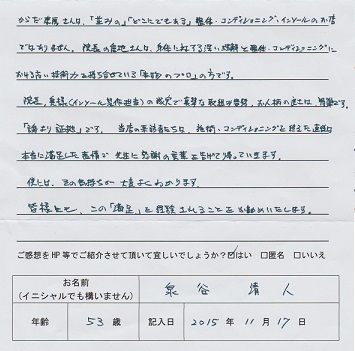 からだ康房さんは、「並みの」「どこにでもある」整体・コンディショニング・インソールのお店
ではありません。院長の 身体に対する深い理解と整体・コンディショニングに
おける高い技術力を持ち合せている「本物のプロ」の方です。
院長、奥様(インソール製作担当)の誠実で真摯な取組み姿勢、お人柄の良さは、
「論より証拠」です。当店の来訪者たちは、施術・コンディショニングを終えた直後は
本当に満足した表情で先生に感謝の言葉を告げて帰っていきます。
僕には、その気持ちが一番よくわかります。
皆様にも、この「満足」を経験されることをお勧めいたします。
ご感想をHP等でご紹介させて頂いて宜しいでしょうか?☑はい □匿名 □いいえ
お名前
(イニシャルでも構いません)
泉谷 清人
年齢 53 歳 記入日 2015 年 11 月 17 日